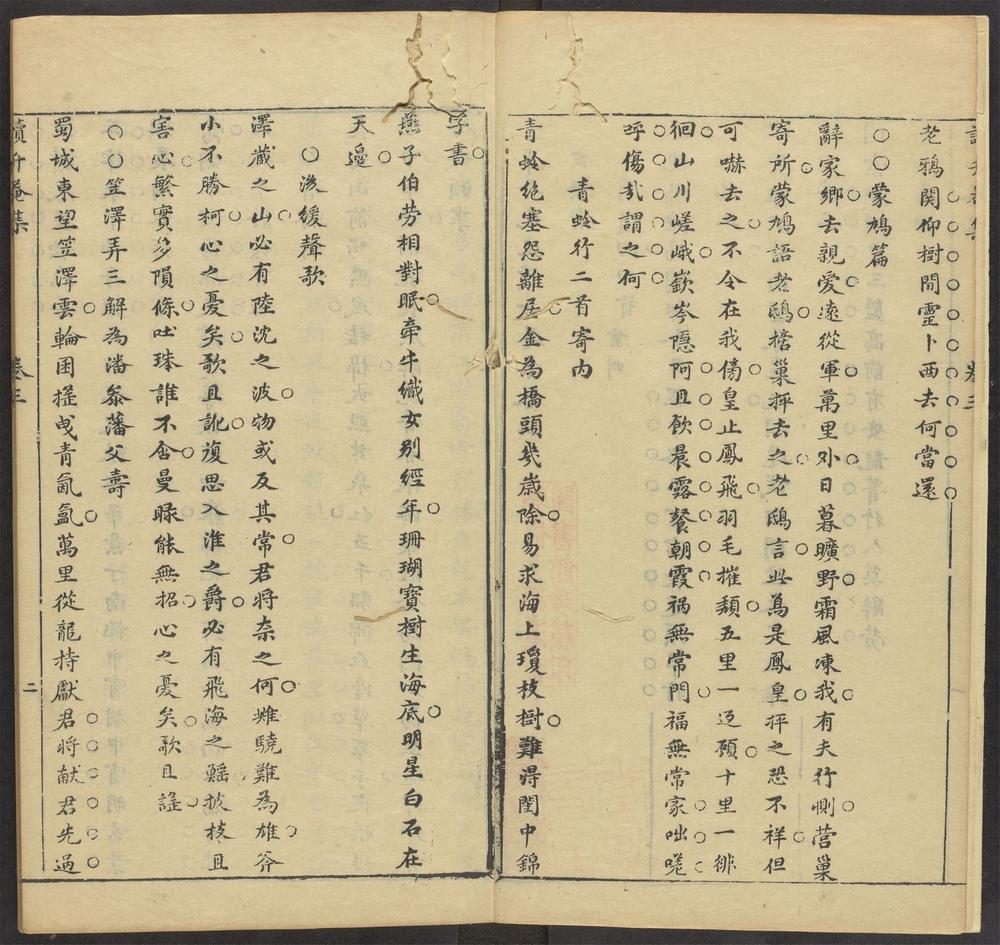 老鴉関仰樹問靈卜西去何當還
○○蒙鳩篇
辭家鄉去親愛遠從軍萬里外日暮曠野霜風凍我有夫行惻营巢
寄所蒙鳩語老鴟搭巢抨去之老鴟言此為是鳳皇抨之恐不祥但
可嚇去之不令在我傍皇止鳳飛羽毛摧頽五里一返顧十里一徘
徊山川嵯峨嶔岑隱阿且飲晨露餐朝霞禍無常門福無常家咄嗟
呼傷哉謂之何
青蛉行二首寄内
青蛉絶塞怨離居金為橋頭幾歲除易求海上瓊枝樹難得閨中錦
字書
燕子伯勞相對眠牽牛織女别經年珊瑚寶樹生海底明星白石在
天邊
○渋緩聲歌
澤蔵之山必有陸沈之波物或及其常君将奈之何雉驍難為雄斧
小不勝柯心之憂矣歌且訛復思入淮之爵必有飛海之鰩披枝且
害心繁實多隕條吐珠誰不含曼睩能無招心之憂矣歌且謡
○○笠澤弄三解為潘叅藩父壽
蜀城東望笠澤雲輪囷搖曳青氤氳萬里從龍持獻君将献君先過
卷三
二